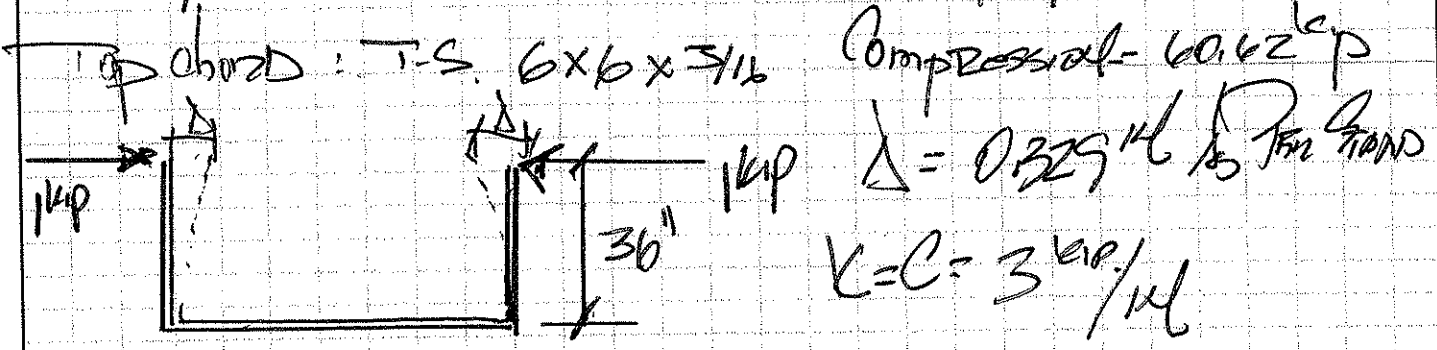 Top Chord : T.S. 6x6x3/16 Compression = 60.62 kip
Δ Δ
1 kip 1 kip Δ = 0.329 in As Per STAAD
36" K=C= 3 kip/in